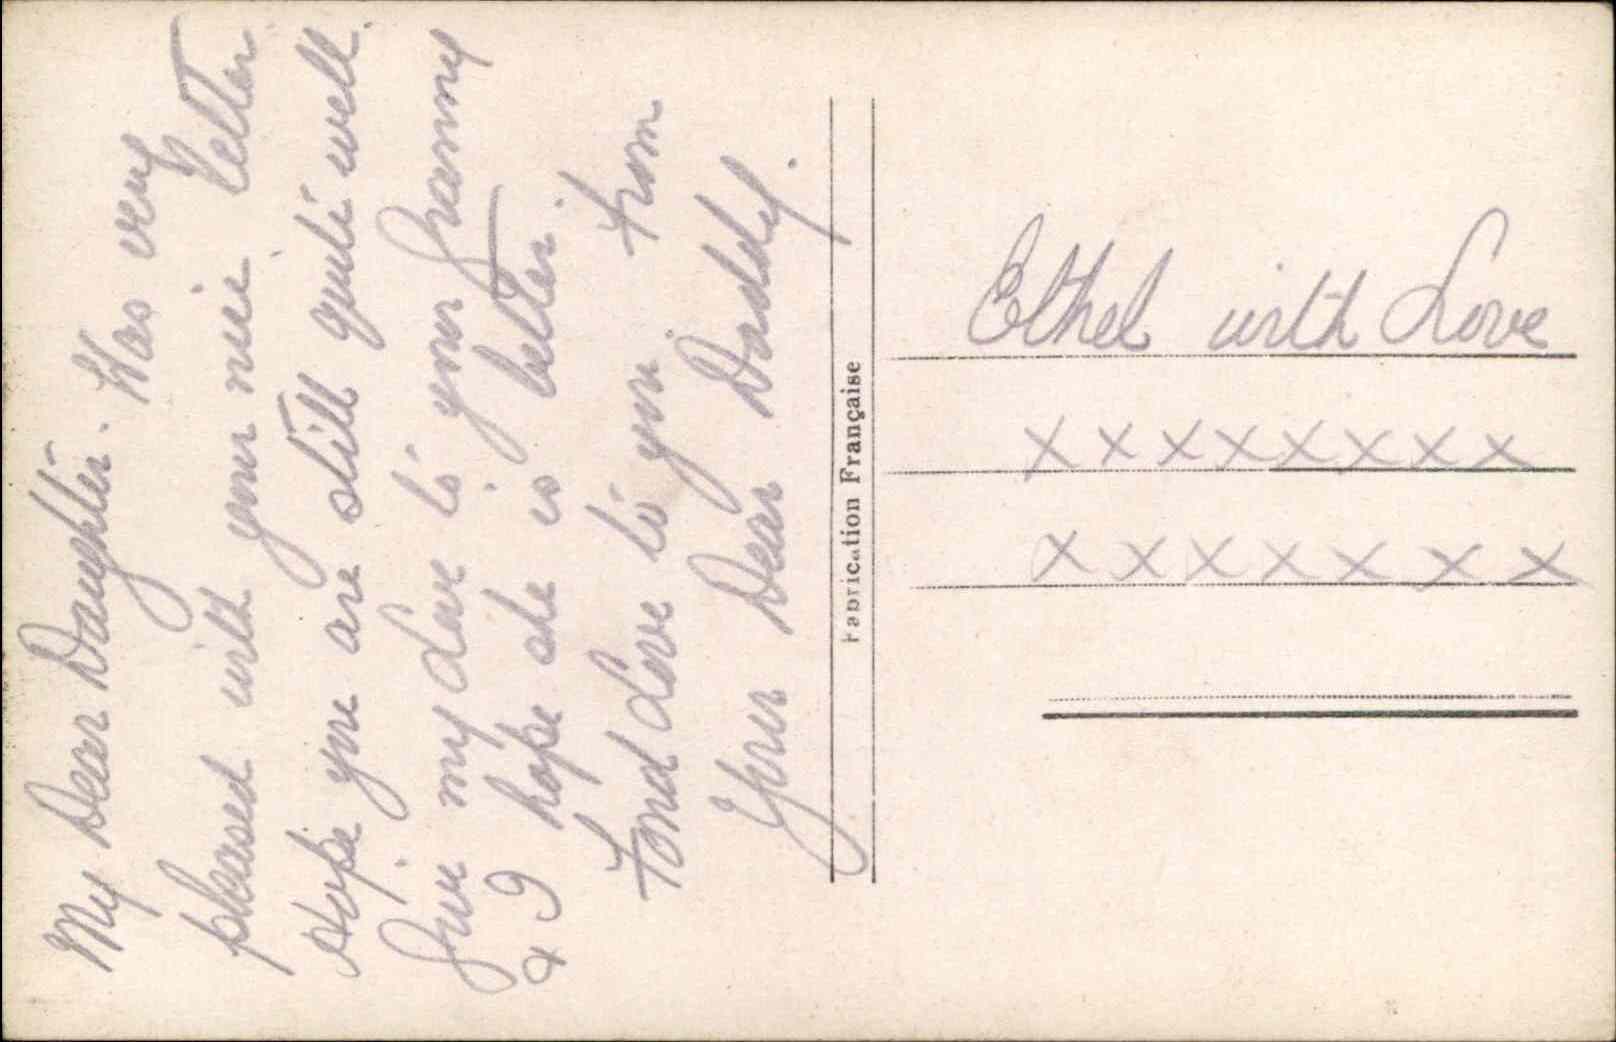 My Dear Daughter. Was very
pleased with your nice letter
Hope you are still quite well.
Give my Love to your Granny
& I hope she is better.
Fond Love to you. From
Your Dear Daddy.
Fabrication Française
Ethel with Love
x x x x x x x x
x x x x x x x